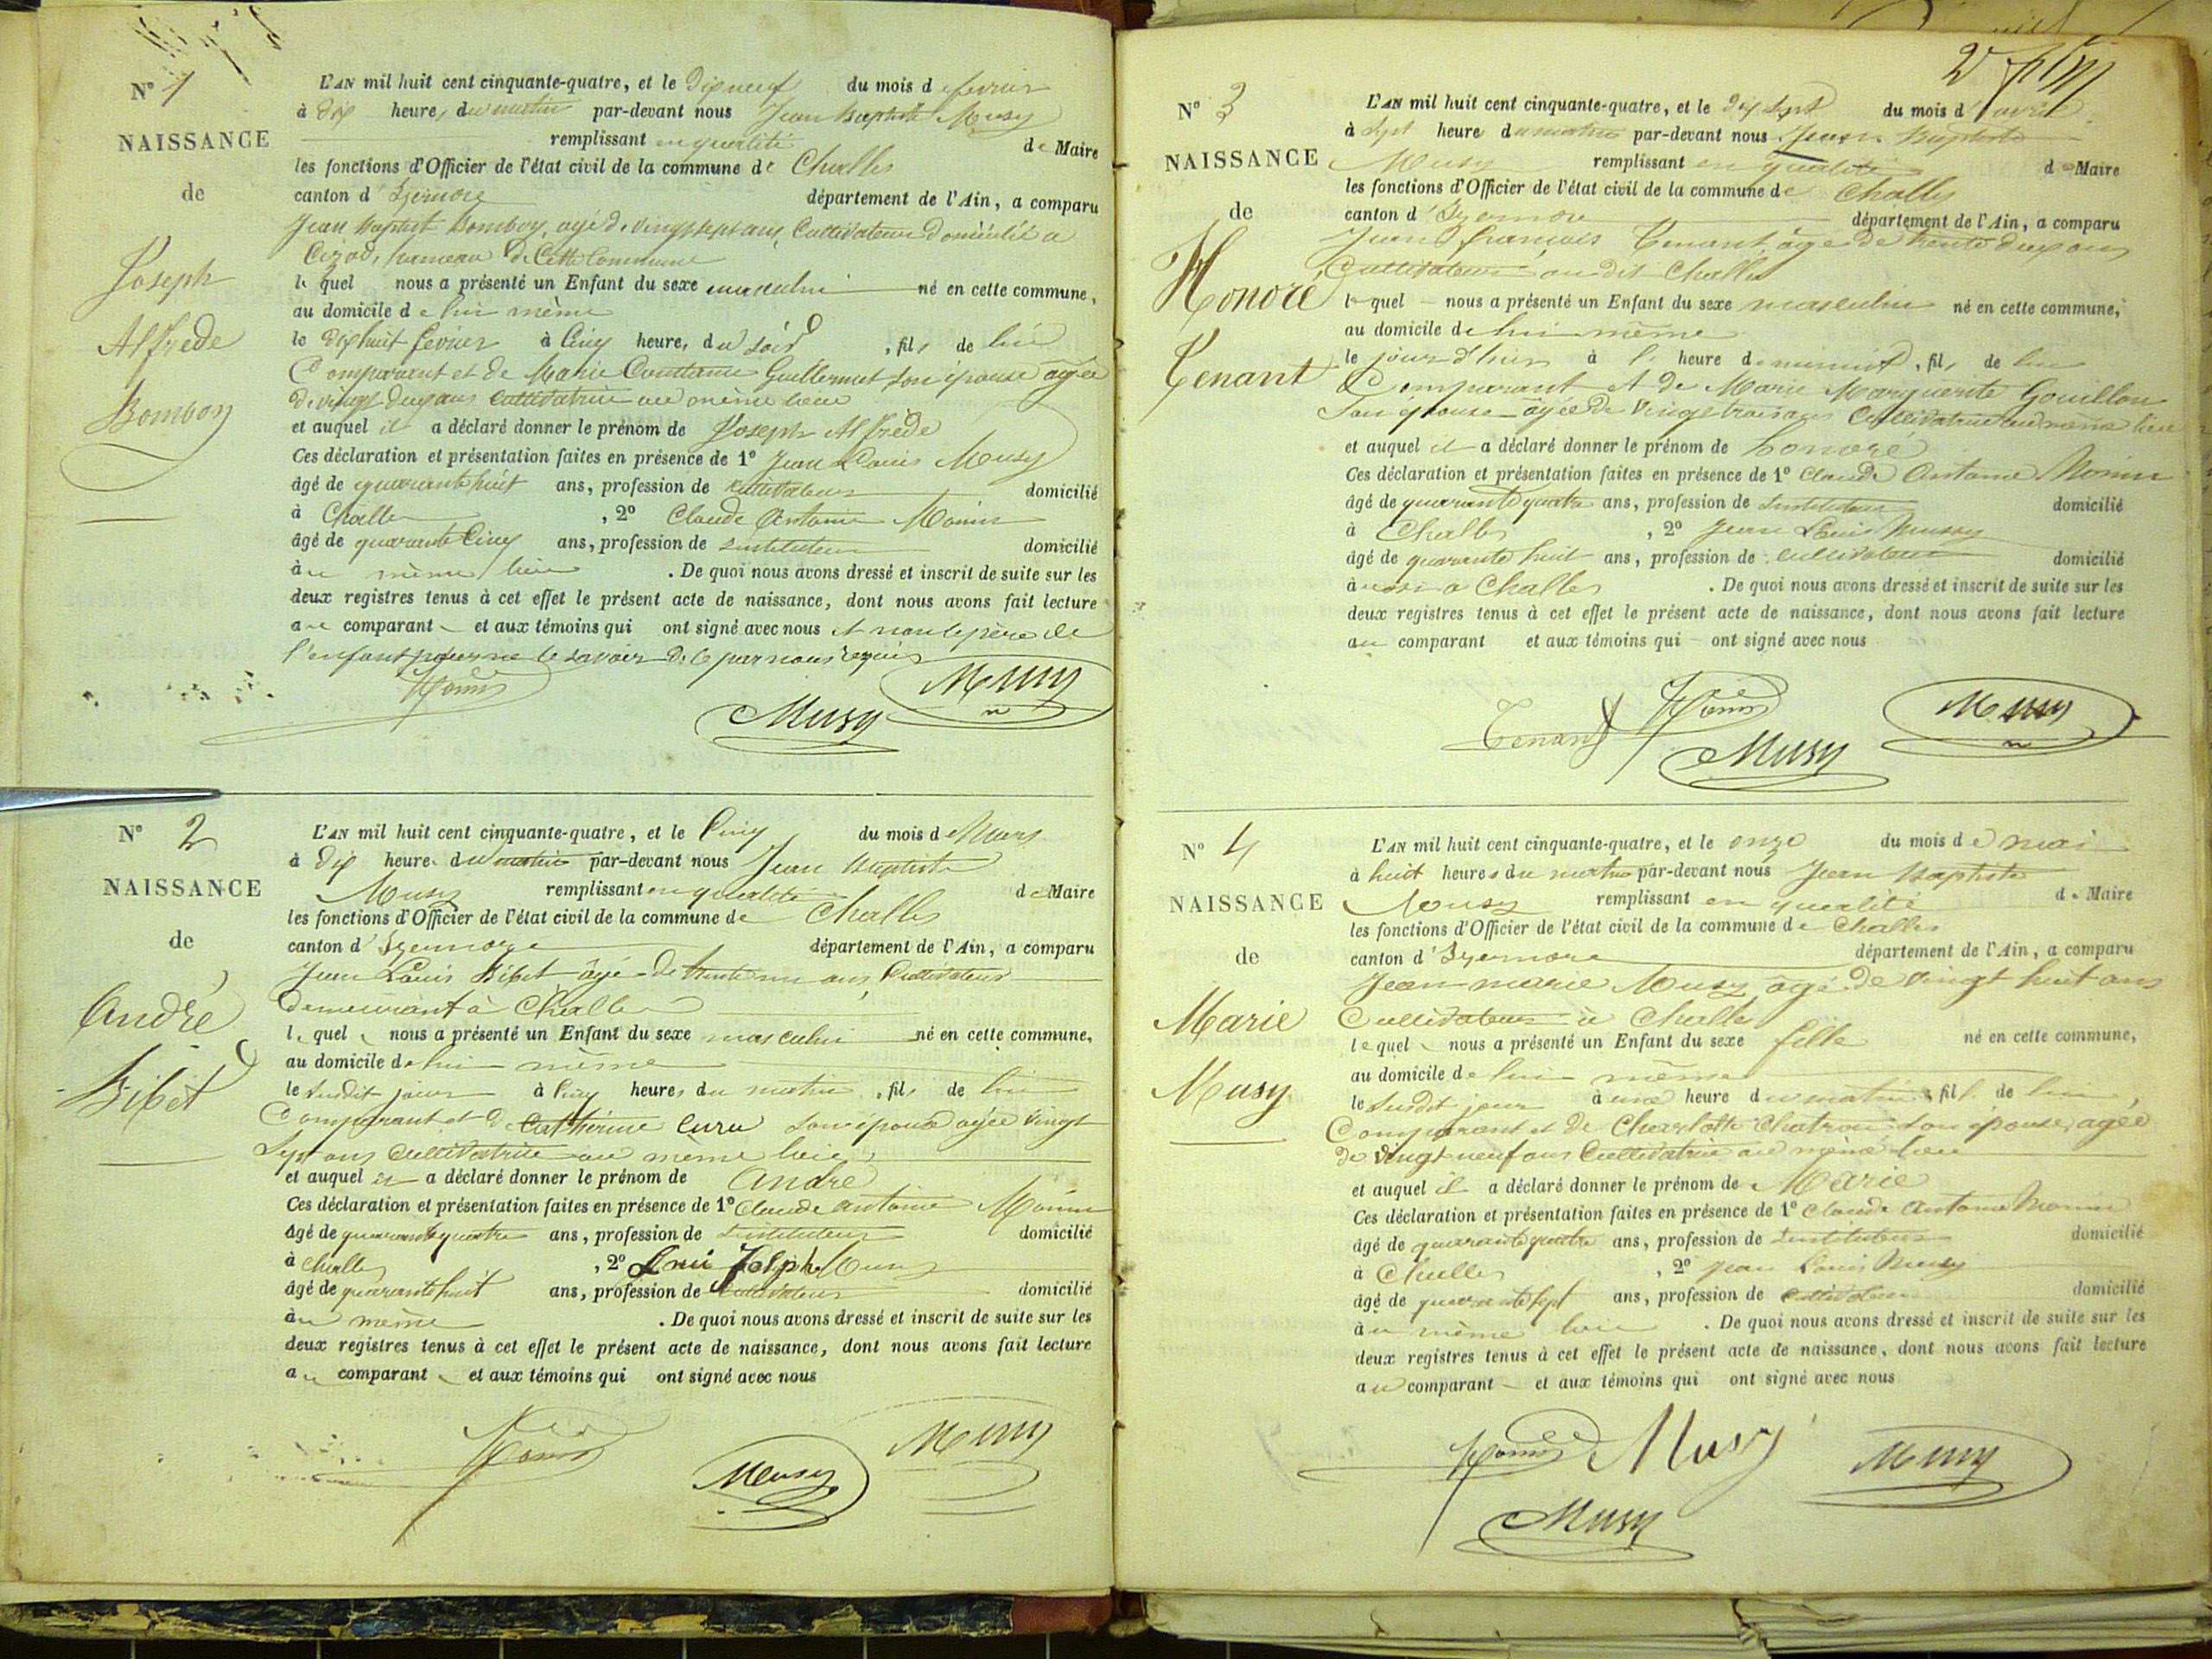 N° 1
NAISSANCE
de
Joseph
Alfrède
Bomboy
L'AN mil huit cent cinquante-quatre, et le Dix neuf du mois de fevrier
à dix heures du matin par-devant nous Jean Baptiste Musy
remplissant en qualité de Maire
les fonctions d'Officier de l'état civil de la commune de Challes
canton d'Izernore département de l'Ain, a comparu
Jean Baptist Bomboy, agé de vingt sept ans, Cultivateur domicilié a
hameau de Cette Commune
le quel nous a présenté un Enfant du sexe masculin né en cette commune,
au domicile de lui même
le Dix huit fevrier à Cinq heures du soir, fils de lui
Comparant et de Marie Guillermet son épouse agée
de vingt deux ans Cultivatrice au même lieu
et auquel il a déclaré donner le prénom de Joseph Alfrède
Ces déclaration et présentation faites en présence de 1° Jean Louis Musy
âgé de quarante huit ans, profession de cultivateur domicilié
à Challes, 2° Claude Antoine Monin
âgé de quarante Cinq ans, profession de instituteur domicilié
au même lieu. De quoi nous avons dressé et inscrit de suite sur les
deux registres tenus à cet effet le présent acte de naissance, dont nous avons fait lecture
au comparant et aux témoins qui ont signé avec nous et non le père de
l'enfant pour ne le savoir de ce par nous requis
Monin
Musy
Musy
N° 2
NAISSANCE
de
André
Bibet
L'AN mil huit cent cinquante-quatre, et le Cinq du mois de Mars
à dix heure du matin par-devant nous Jean Baptiste
Musy remplissant en qualité de Maire
les fonctions d'Officier de l'état civil de la commune de Challes
canton d'Izernore département de l'Ain, a comparu
Jean Louis Bibet âgé de trente un ans Cultivateur
demeurant à Challes
le quel nous a présenté un Enfant du sexe masculin né en cette commune,
au domicile de lui même
le susdit jour à Cinq heures du matin, fils de lui
Comparant et de Catherine son épouse agée vingt
sept ans Cultivatrice au même lieu
et auquel il a déclaré donner le prénom de André
Ces déclaration et présentation faites en présence de 1° Claude antoine Monin
âgé de quarante quatre ans, profession de instituteur domicilié
à Challes, 2° Joseph Musy
âgé de quarante huit ans, profession de cultivateur domicilié
au même. De quoi nous avons dressé et inscrit de suite sur les
deux registres tenus à cet effet le présent acte de naissance, dont nous avons fait lecture
au comparant et aux témoins qui ont signé avec nous
Monin
Musy
Musy
N° 3
NAISSANCE
de
Honoré
Tenant
L'AN mil huit cent cinquante-quatre, et le Dix sept du mois d'avril
à sept heure du matin par-devant nous Jean Baptiste
Musy remplissant en qualité de Maire
les fonctions d'Officier de l'état civil de la commune de Challes
canton d'Izernore département de l'Ain, a comparu
Jean françois Tenant âgé de trente deux ans
Cultivateur audit Challes
le quel nous a présenté un Enfant du sexe masculin né en cette commune,
au domicile de lui même
le jour d'hier à l' heure de minuit, fils de lui
Comparant et de Marie Marguerite Gouillon
son épouse âgée de vingt trois ans Cultivatrice au même lieu
et auquel il a déclaré donner le prénom de honoré
Ces déclaration et présentation faites en présence de 1° Claude Antoine Monin
âgé de quarante quatre ans, profession de instituteur domicilié
à Challes, 2° Jean Louis Mussy
âgé de quarante huit ans, profession de cultivateur domicilié
aussi a Challes. De quoi nous avons dressé et inscrit de suite sur les
deux registres tenus à cet effet le présent acte de naissance, dont nous avons fait lecture
au comparant et aux témoins qui ont signé avec nous
Tenant
Monin
Musy
Musy
N° 4
NAISSANCE
de
Marie
Musy
L'AN mil huit cent cinquante-quatre, et le onze du mois de mai
à huit heures du matin par-devant nous Jean Baptiste
Musy remplissant en qualité de Maire
les fonctions d'Officier de l'état civil de la commune de Challes
canton d'Izernore département de l'Ain, a comparu
Jean marie Musy âgé de vingt huit ans
Cultivateur à Challes
le quel nous a présenté un Enfant du sexe fille né en cette commune,
au domicile de lui même
le susdit jour à une heure du matin, fil de lui
Comparant et de Charlotte Chatron son épouse, agée
de vingt neuf ans Cultivatrice au même lieu
et auquel il a déclaré donner le prénom de Marie
Ces déclaration et présentation faites en présence de 1° Claude Antoine Monin
âgé de quarante quatre ans, profession de instituteur domicilié
à Challes, 2° Jean Louis Musy
âgé de quarante sept ans, profession de cultivateur domicilié
au même lieu. De quoi nous avons dressé et inscrit de suite sur les
deux registres tenus à cet effet le présent acte de naissance, dont nous avons fait lecture
au comparant et aux témoins qui ont signé avec nous
Monin
Musy
Musy
Musy